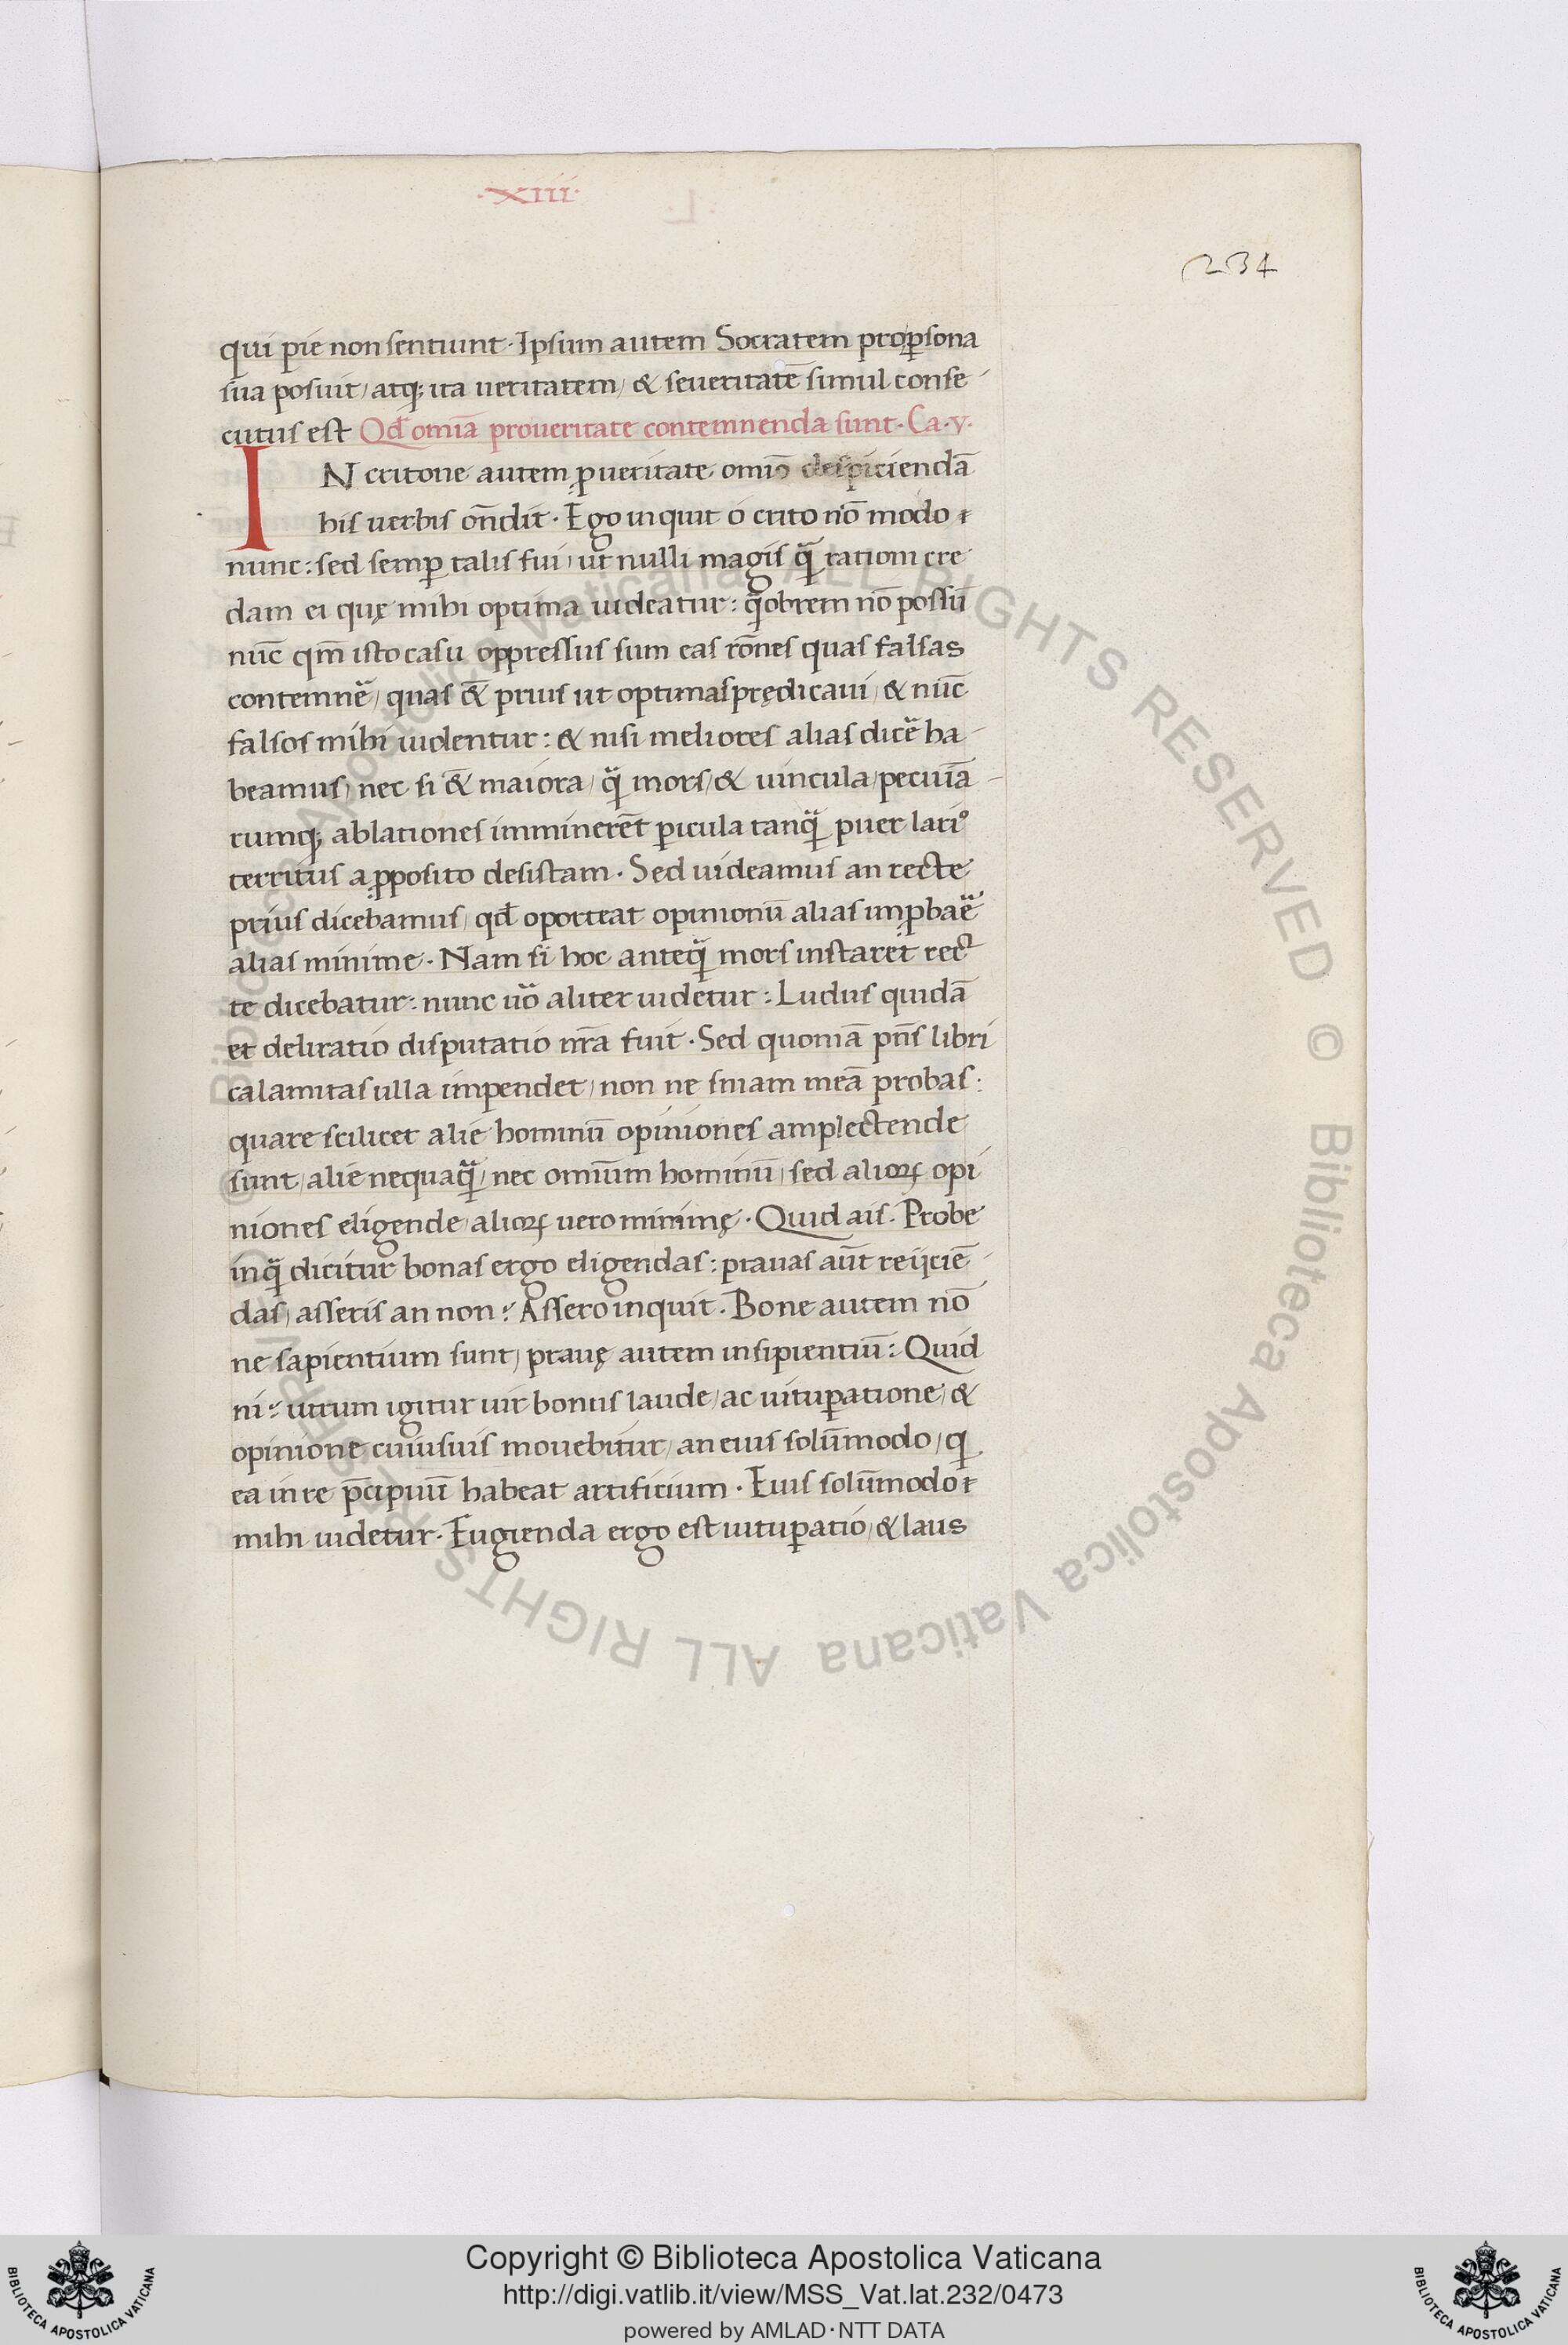 ·XIII·
234
qui pie non sentiunt· Ipsum autem Socratem prop̱sona
sua posuit, atq; ita ueritatem, & seueritatē simul conse
cutus est Qđ omīa pro ueritate contemnenda sunt· Ca·v·
IN critone autem ꝓ ueritate omīo despiciendā
his uerbis on̄dit· Ego inquit o crito nō modo
nunc: sed semꝑ talis fui, ut nulli magis qȝ rationi cre
dam ei quę mihi optima uideatur: q̈obrem nō possū
nūc qm̄ isto casu oppressus sum eas rōnes quas falsas
contemnē, quas &̄ prius ut optimas prędicaui, & nūc
falsos mihi uidentur: & nisi meliores alias dicē ha
beamus, nec si &̄ maiora, q̈ mors, & uincula, pecuiā
rumq; ablationes imminerēt ꝑicula tanq̈ puer lari⁹
territus a ꝓposito desistam· Sed uideamus an recte
prius dicebamus, qđ oporteat opinionū alias imꝓbaē
alias minime· Nam si hoc anteq̈ mors instaret rec
te dicebatur: nunc uō aliter uidetur: Ludus quidā
et deliratio disputatio nr̄a fuit· Sed quoniā pn̄s libri
calamitas ulla impendet, non ne sniam meā probas:
quare scilicet alie hominū opiniones amplectende
sunt, alie nequaq̈, nec omīum hominū, sed alioꝝ opi
niones eligende, alioꝝ uero minimę· Quid ais· Probe
inq̈ dicitur bonas ergo eligendas: prauas aūt reijciē
das, asseris an non? Assero inquit· Bone autem nō
ne sapientium sunt, prauę autem insipientiū: Quid
ni? utrum igitur uir bonus laude, ac uituꝑatione, &
opinione cuiusuis mouebitur, an eius solūmodo, q
ea in re p̄cipuū habeat artificium· Eius solūmodo
mihi uidetur· Fugienda ergo est uituꝑatio, & laus
© Biblioteca Apostolica Vaticana ALL RIGHTS RESERVED © Biblioteca Apostolica Vaticana ALL RIGHTS RESERVED
Copyright © Biblioteca Apostolica Vaticana
http://digi.vatlib.it/view/MSS_Vat.lat.232/0473
powered by AMLAD·NTT DATA
BIBLIOTECA APOSTOLICA VATICANA
BIBLIOTECA APOSTOLICA VATICANA